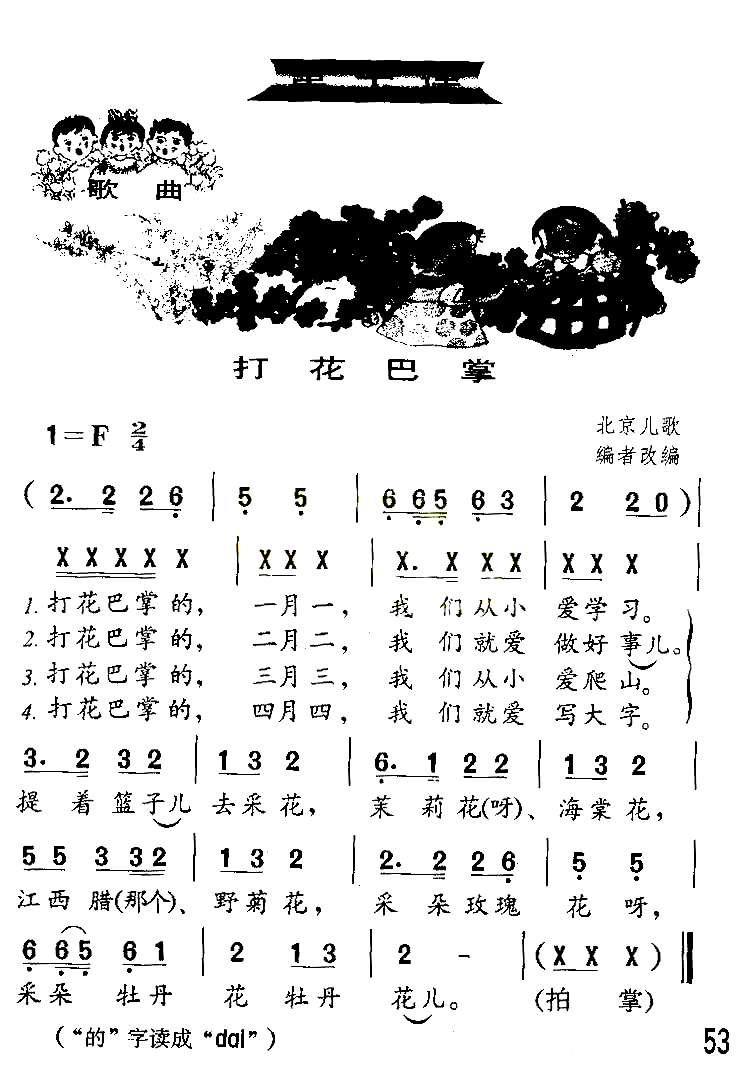 歌 曲
打 花 巴 掌
1=F 2/4
北京儿歌
编者改编
( 2. 2 2 6 | 5 5 | 6 6 5 6 3 | 2 2 0 ) |
X X X X X | X X X | X. X X X | X X X |
1. 打花巴掌的， 一月一， 我 们从小 爱学习。
2. 打花巴掌的， 二月二， 我 们就爱 做好事儿。
3. 打花巴掌的， 三月三， 我 们从小 爱爬山。
4. 打花巴掌的， 四月四， 我 们就爱 写大字。
3. 2 3 2 | 1 3 2 | 6. 1 2 2 | 1 3 2 |
提 着 篮子儿 去采花， 茉 莉花(呀)、 海棠花，
5 5 3 3 2 | 1 3 2 | 2. 2 2 6 | 5 5 |
江西 腊(那个)、 野菊花， 采 朵玫瑰 花 呀，
6 6 5 6 1 | 2 1 3 | 2 - | ( X X X ) ‖
采朵 牡丹 花 牡丹 花儿。 (拍 掌)
(“的”字读成“dai”)
53